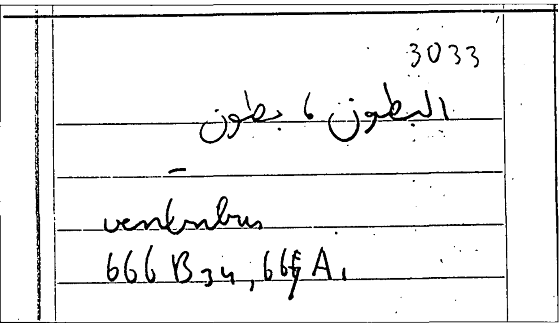 3033
البطون ، بطون
-
ventribus
666 B34, 667 A1